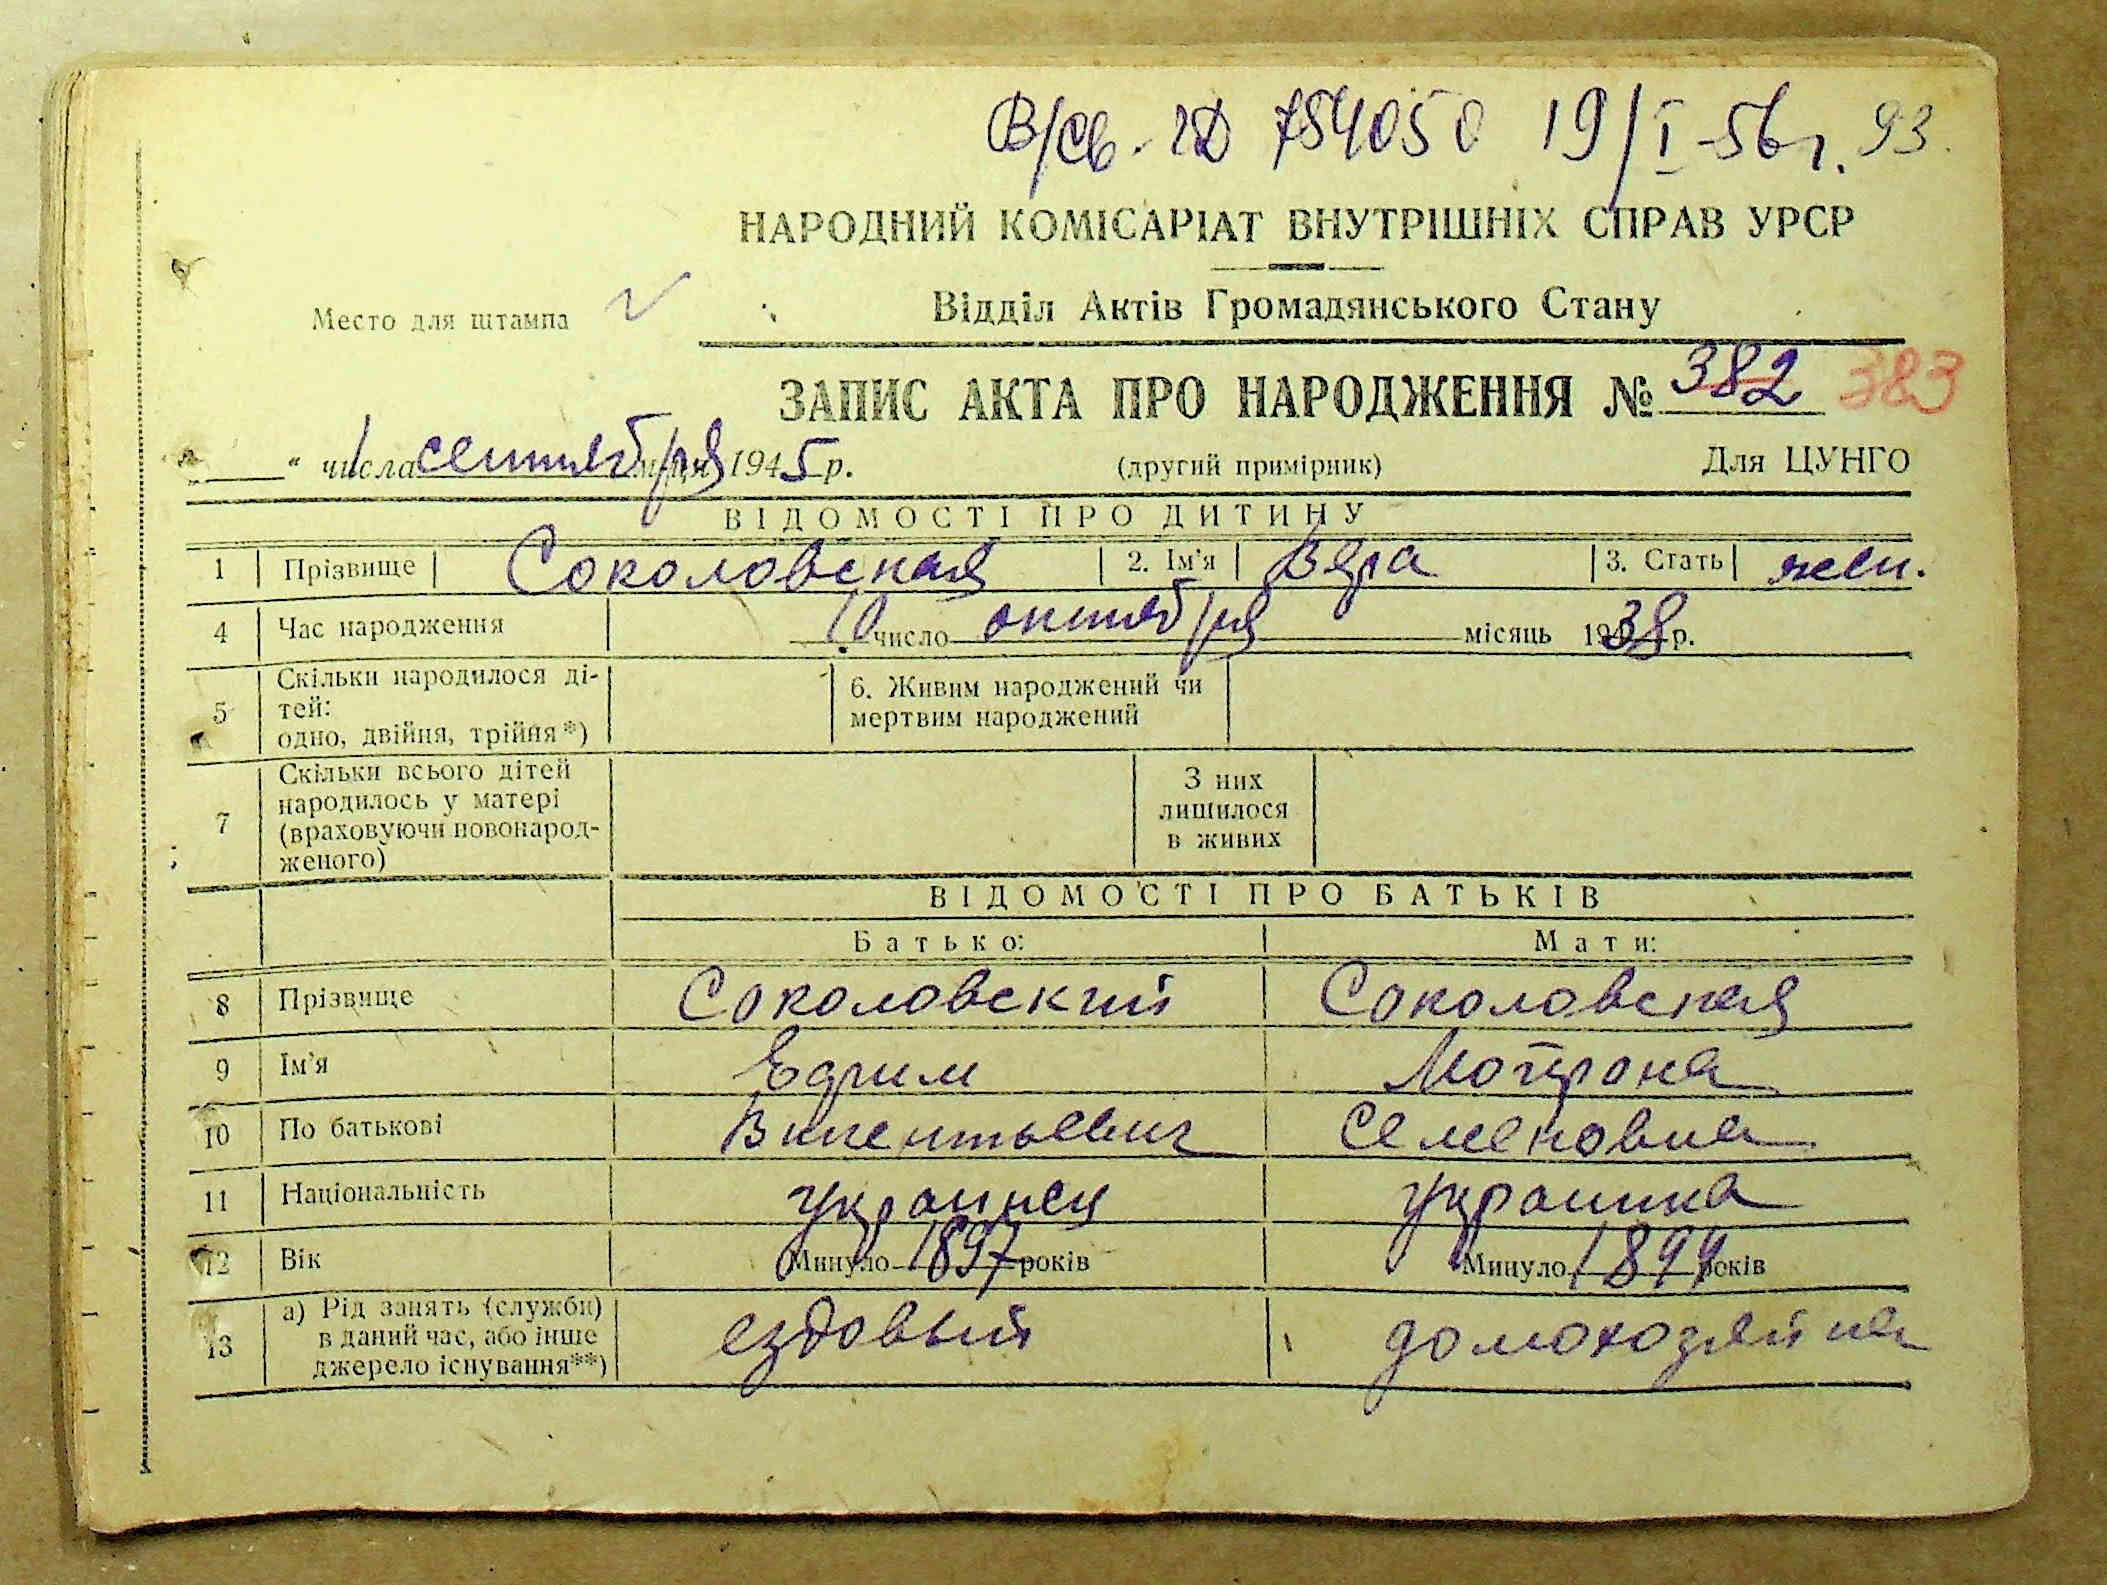 В/св. 2Д 754050 19/I-56 г. 93.
НАРОДНИЙ КОМІСАРІАТ ВНУТРІШНІХ СПРАВ УРСР
Место для штампа
Відділ Актів Громадянського Стану
ЗАПИС АКТА ПРО НАРОДЖЕННЯ № 382 383
1 " числа сентября м-ця 1945 р. (другий примірник) Для ЦУНГО
ВІДОМОСТІ ПРО ДИТИНУ
1 Прізвище Соколовская 2. Ім'я Вера 3. Стать жен.
4 Час народження 10 число октября місяць 1938 р.
5 Скільки народилося дітей: одно, двійня, трійня*) 6. Живим народжений чи мертвим народжений
7 Скільки всього дітей народилось у матері (враховуючи новонародженого) З них лишилося в живих
ВІДОМОСТІ ПРО БАТЬКІВ
Батько: Мати:
8 Прізвище Соколовский Соколовская
9 Ім'я Мотрона
10 По батькові Викентьевич Семеновна
11 Національність украинец украинка
12 Вік Минуло 1897 років Минуло 1899 років
13 а) Рід занять (служби) в даний час, або інше джерело існування**) ездовый домохозяйка